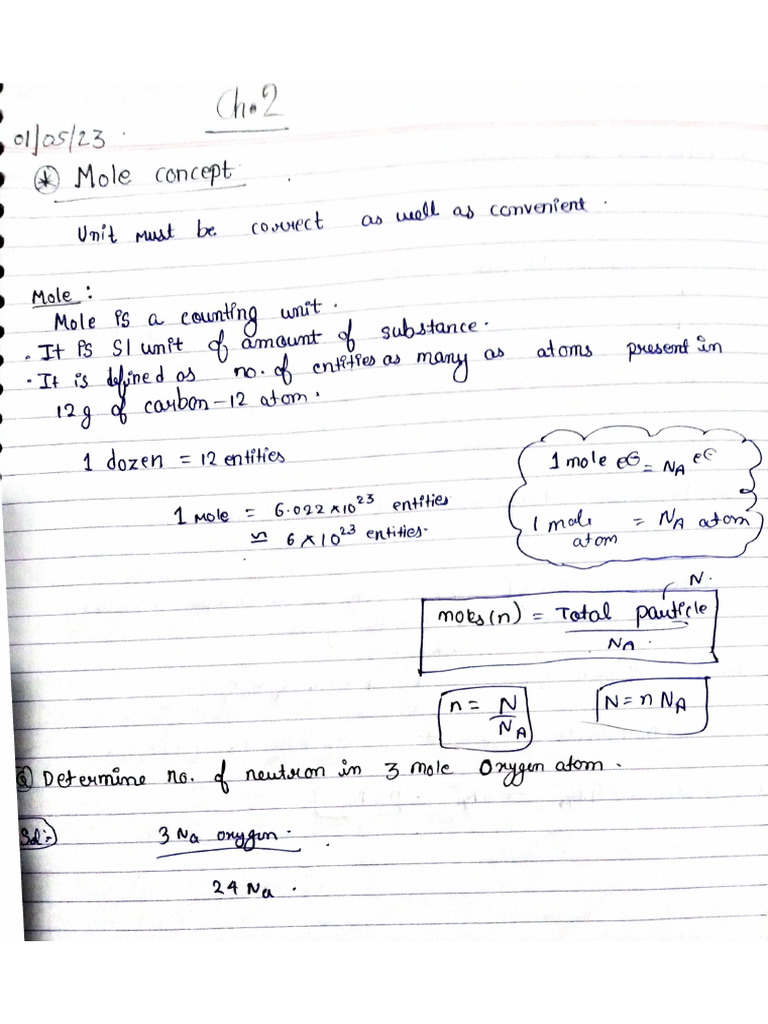 Ch.2
01/05/23
* Mole concept
Unit must be correct as well as convenient.
Mole:
Mole is a counting unit.
. It is SI unit of amount of substance.
. It is defined as no. of entities as many as atoms present in
12g of carbon-12 atom.
1 dozen = 12 entities
1 mole = 6.022×10²³ entities
≃ 6×10²³ entities.
1 mole = NA
1 mole atom = NA atom
N.
moles(n) = Total particle / NA.
n = N / NA
N = n NA
Q Determine no. of neutron in 3 mole Oxygen atom.
Sol:-
3 Na oxygen.
24 Na.